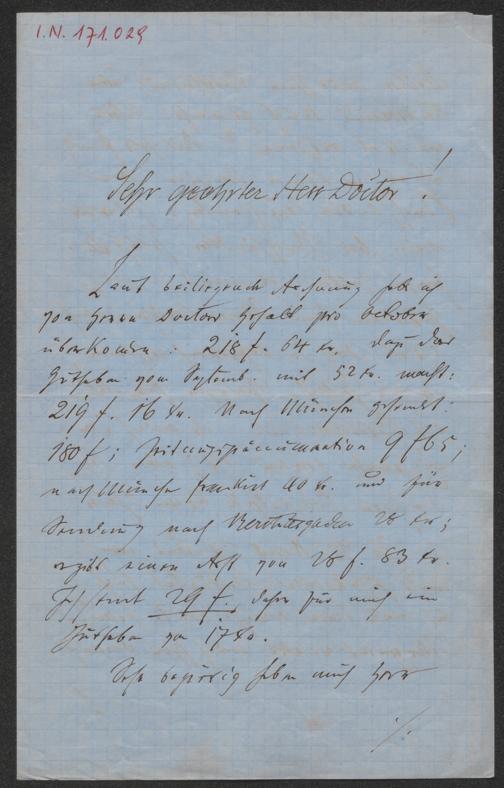 I.N. 171.029
Sehr geehrter Herr Doctor!
Laut beiliegender Rechnung habe ich
von Herrn Doctor Gehalt pro October
überkommen: 218 f. 64 kr. dazu das
Guthaben vom Septemb. mit 52 kr. macht:
219 f. 16 kr. Nach München gesandt:
180 f; Zeitungspränumeration 9 f 65;
nach München frankirt 40 kr. und für
Sendung nach Berchtesgaden 28 kr;
ergibt einen Rest von 28 f. 83 kr.
29 f, daher für mich ein
Guthaben von 17 kr.
Sehr begierig haben mich Herr
./.